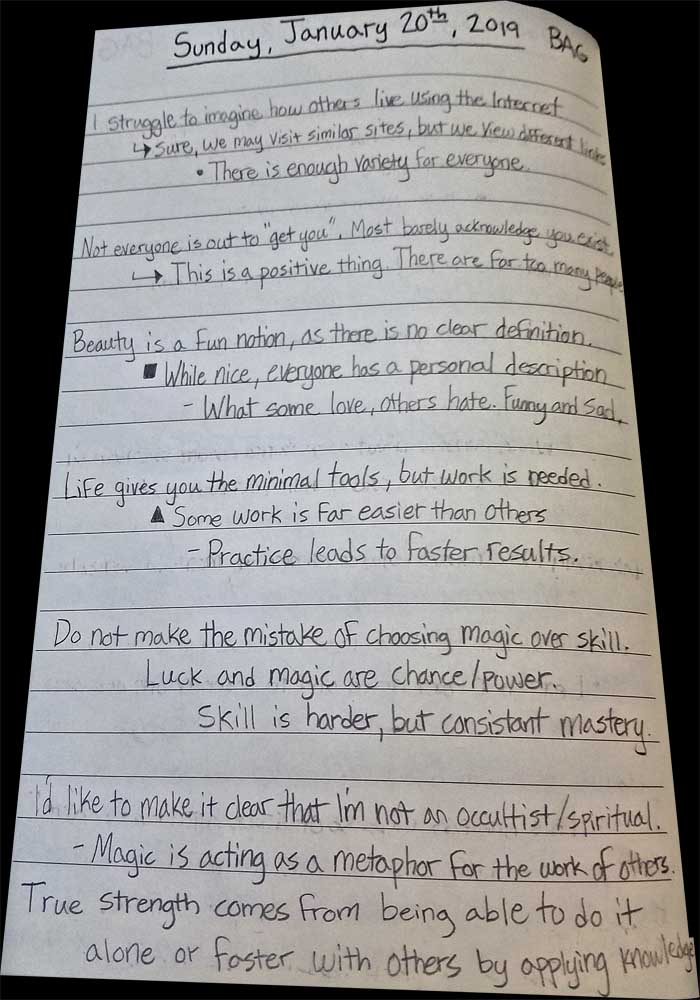 Sunday, January 20th, 2019 BAG
I struggle to imagine how others live using the Internet
↳ Sure, we may visit similar sites, but we view different links
• There is enough variety for everyone.
Not everyone is out to "get you". Most barely acknowledge you exist.
↳ This is a positive thing. There are far too many people
Beauty is a fun notion, as there is no clear definition.
■ While nice, everyone has a personal description
- What some love, others hate. Funny and Sad.
Life gives you the minimal tools, but work is needed.
▲ Some work is far easier than others
- Practice leads to faster results.
Do not make the mistake of choosing magic over skill.
Luck and magic are chance/power.
Skill is harder, but consistant mastery.
I'd like to make it clear that I'm not an occultist/spiritual.
- Magic is acting as a metaphor for the work of others.
True strength comes from being able to do it
alone or faster with others by applying knowledge